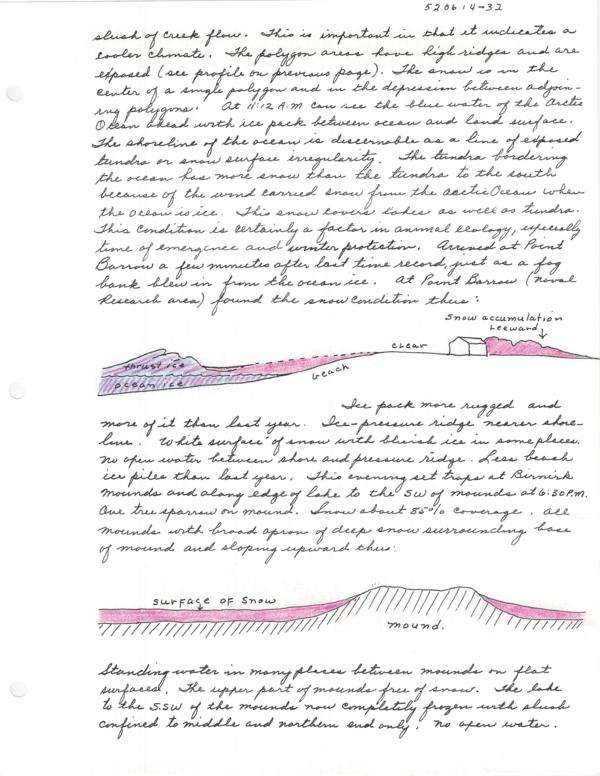 520614-32
slush of creek flow. This is important in that it indicates a
cooler climate. The polygon areas have high ridges and are
exposed (see profile on previous page). The snow is in the
center of a single polygon and in the depression between adjoin-
ing polygons. At 11:12 A.M can see the blue water of the Arctic
Ocean ahead with ice pack between ocean and land surface.
The shoreline of the ocean is discernable as a line of exposed
tundra or snow surface irregularity. The tundra bordering
the ocean has more snow than the tundra to the south
because of the wind carried snow from the Arctic Ocean when
the ocean is ice. This snow covers lakes as well as tundra.
This condition is certainly a factor in animal ecology, especially
time of emergence and winter protection. Arrived at Point
Barrow a few minutes after last time record, just as a fog
bank blew in from the ocean ice. At Point Barrow (Naval
Research area) found the snow condition thus:
Snow accumulation
Leeward
clear
thrust ice
beach
ocean ice
Ice pack more rugged and
more of it than last year. Ice-pressure ridge nearer shore-
line. White surface of snow with bluish ice in some places.
No open water between shore and pressure ridge. Less beach
ice piles than last year. This evening set traps at Birnirk
Mounds and along edge of lake to the SW of mounds at 6:30 P.M.
One tree sparrow on mound. Snow about 85% coverage. All
mounds with broad apron of deep snow surrounding base
of mound and sloping upward thus:
surface of snow
mound.
Standing water in many places between mounds on flat
surfaces. The upper part of mounds free of snow. The lake
to the S.SW of the mounds now completely frozen with slush
confined to middle and northern end only. No open water.